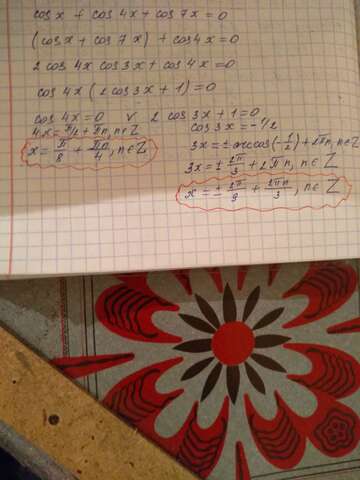 cosx + cos4x + cos7x = 0
(cosx + cos7x) + cos4x = 0
2 cos4x cos3x + cos4x = 0
cos4x (2cos3x + 1) = 0
cos4x = 0 v 2 cos3x + 1 = 0
4x = π/2 + πn, n∈Z
x = π/8 + πn/4, n∈Z
cos3x = -1/2
3x = ± arccos(-1/2) + 2πn, n∈Z
3x = ± 2π/3 + 2πn, n∈Z
x = ± 2π/9 + 2πn/3, n∈Z